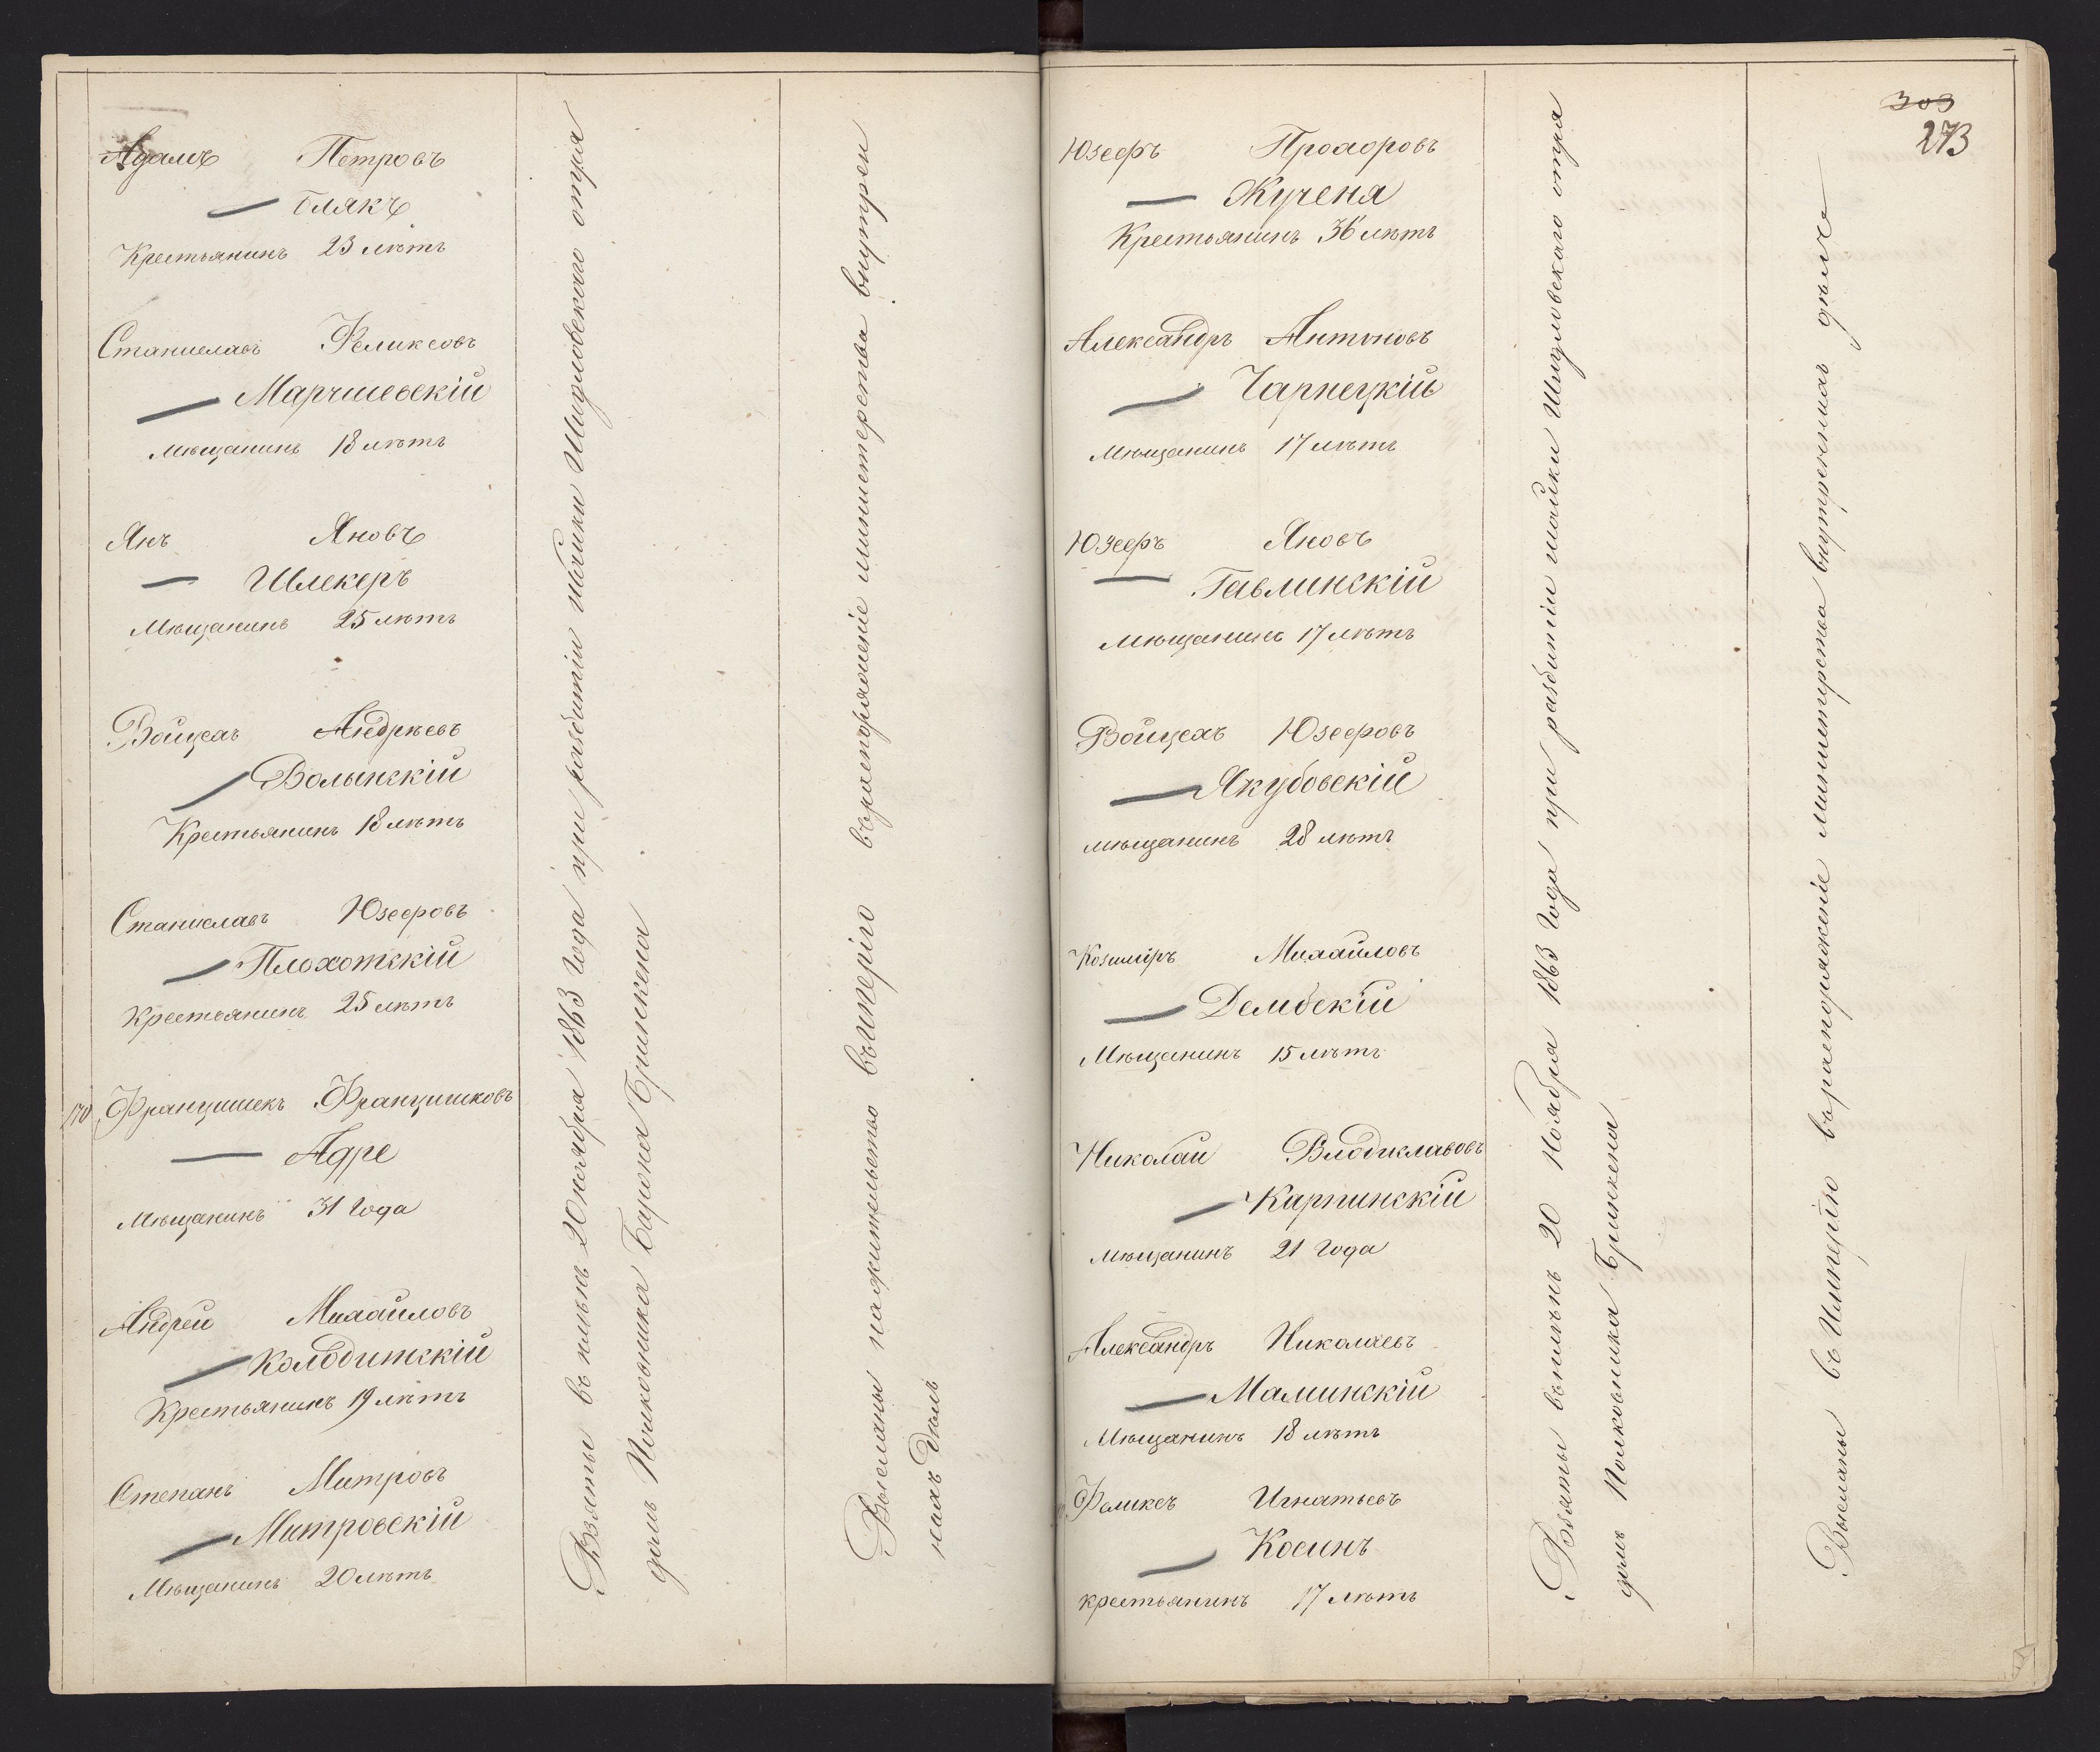 Адамъ Петровъ
Блякъ
Крестьянинъ 23 лѣтъ
Станиславъ Феликсовъ
Марчшевскій
Мѣщанинъ 18 лѣтъ
Янъ Яновъ
Шлекеръ
Мѣщанинъ 25 лѣтъ
Войцехъ Андрѣевъ
Волынскій
Крестьянинъ 18 лѣтъ
Станиславъ Юзефовъ
Плохотскій
Крестьянинъ 25 лѣтъ
170 Францишекъ Францишковъ
Адре
Мѣщанинъ 31 года
Андрей Михайловъ
Колодитскій
Крестьянинъ 19 лѣтъ
Степанъ Митровъ
Митровскій
Мѣщанинъ 20 лѣтъ
Взяты въ плѣнъ 20 ноября 1863 года при разбитіи шайки Шидловскаго отря
домъ Полковника Барона Бринкена
Высланы на жительство въ имперію въ распоряженіе министерства внутрен
нихъ дѣлъ
303
273
Юзефъ Прохоровъ
Жученя
Крестьянинъ 36 лѣтъ
Александръ Антоновъ
Чарнецкій
Мѣщанинъ 17 лѣтъ
Юзефъ Яновъ
Гавлинскій
Мѣщанинъ 17 лѣтъ
Войцехъ Юзефовъ
Якубовскій
мѣщанинъ 28 лѣтъ
Козиміръ Михайловъ
Дембскій
Мѣщанинъ 15 лѣтъ
Николай Влодиславовъ
Карпинскій
мѣщанинъ 21 года
Александръ Николаевъ
Малинскій
Мѣщанинъ 18 лѣтъ
Феликсъ Игнатьевъ
Косинъ
крестьянинъ 17 лѣтъ
Взяты въ плѣнъ 20 Ноября 1863 года при разбитіи шайки Шидловскаго отря
домъ Полковника Бринкена
Высланы въ Имперію въ распоряженіе министерства внутреннихъ дѣлъ